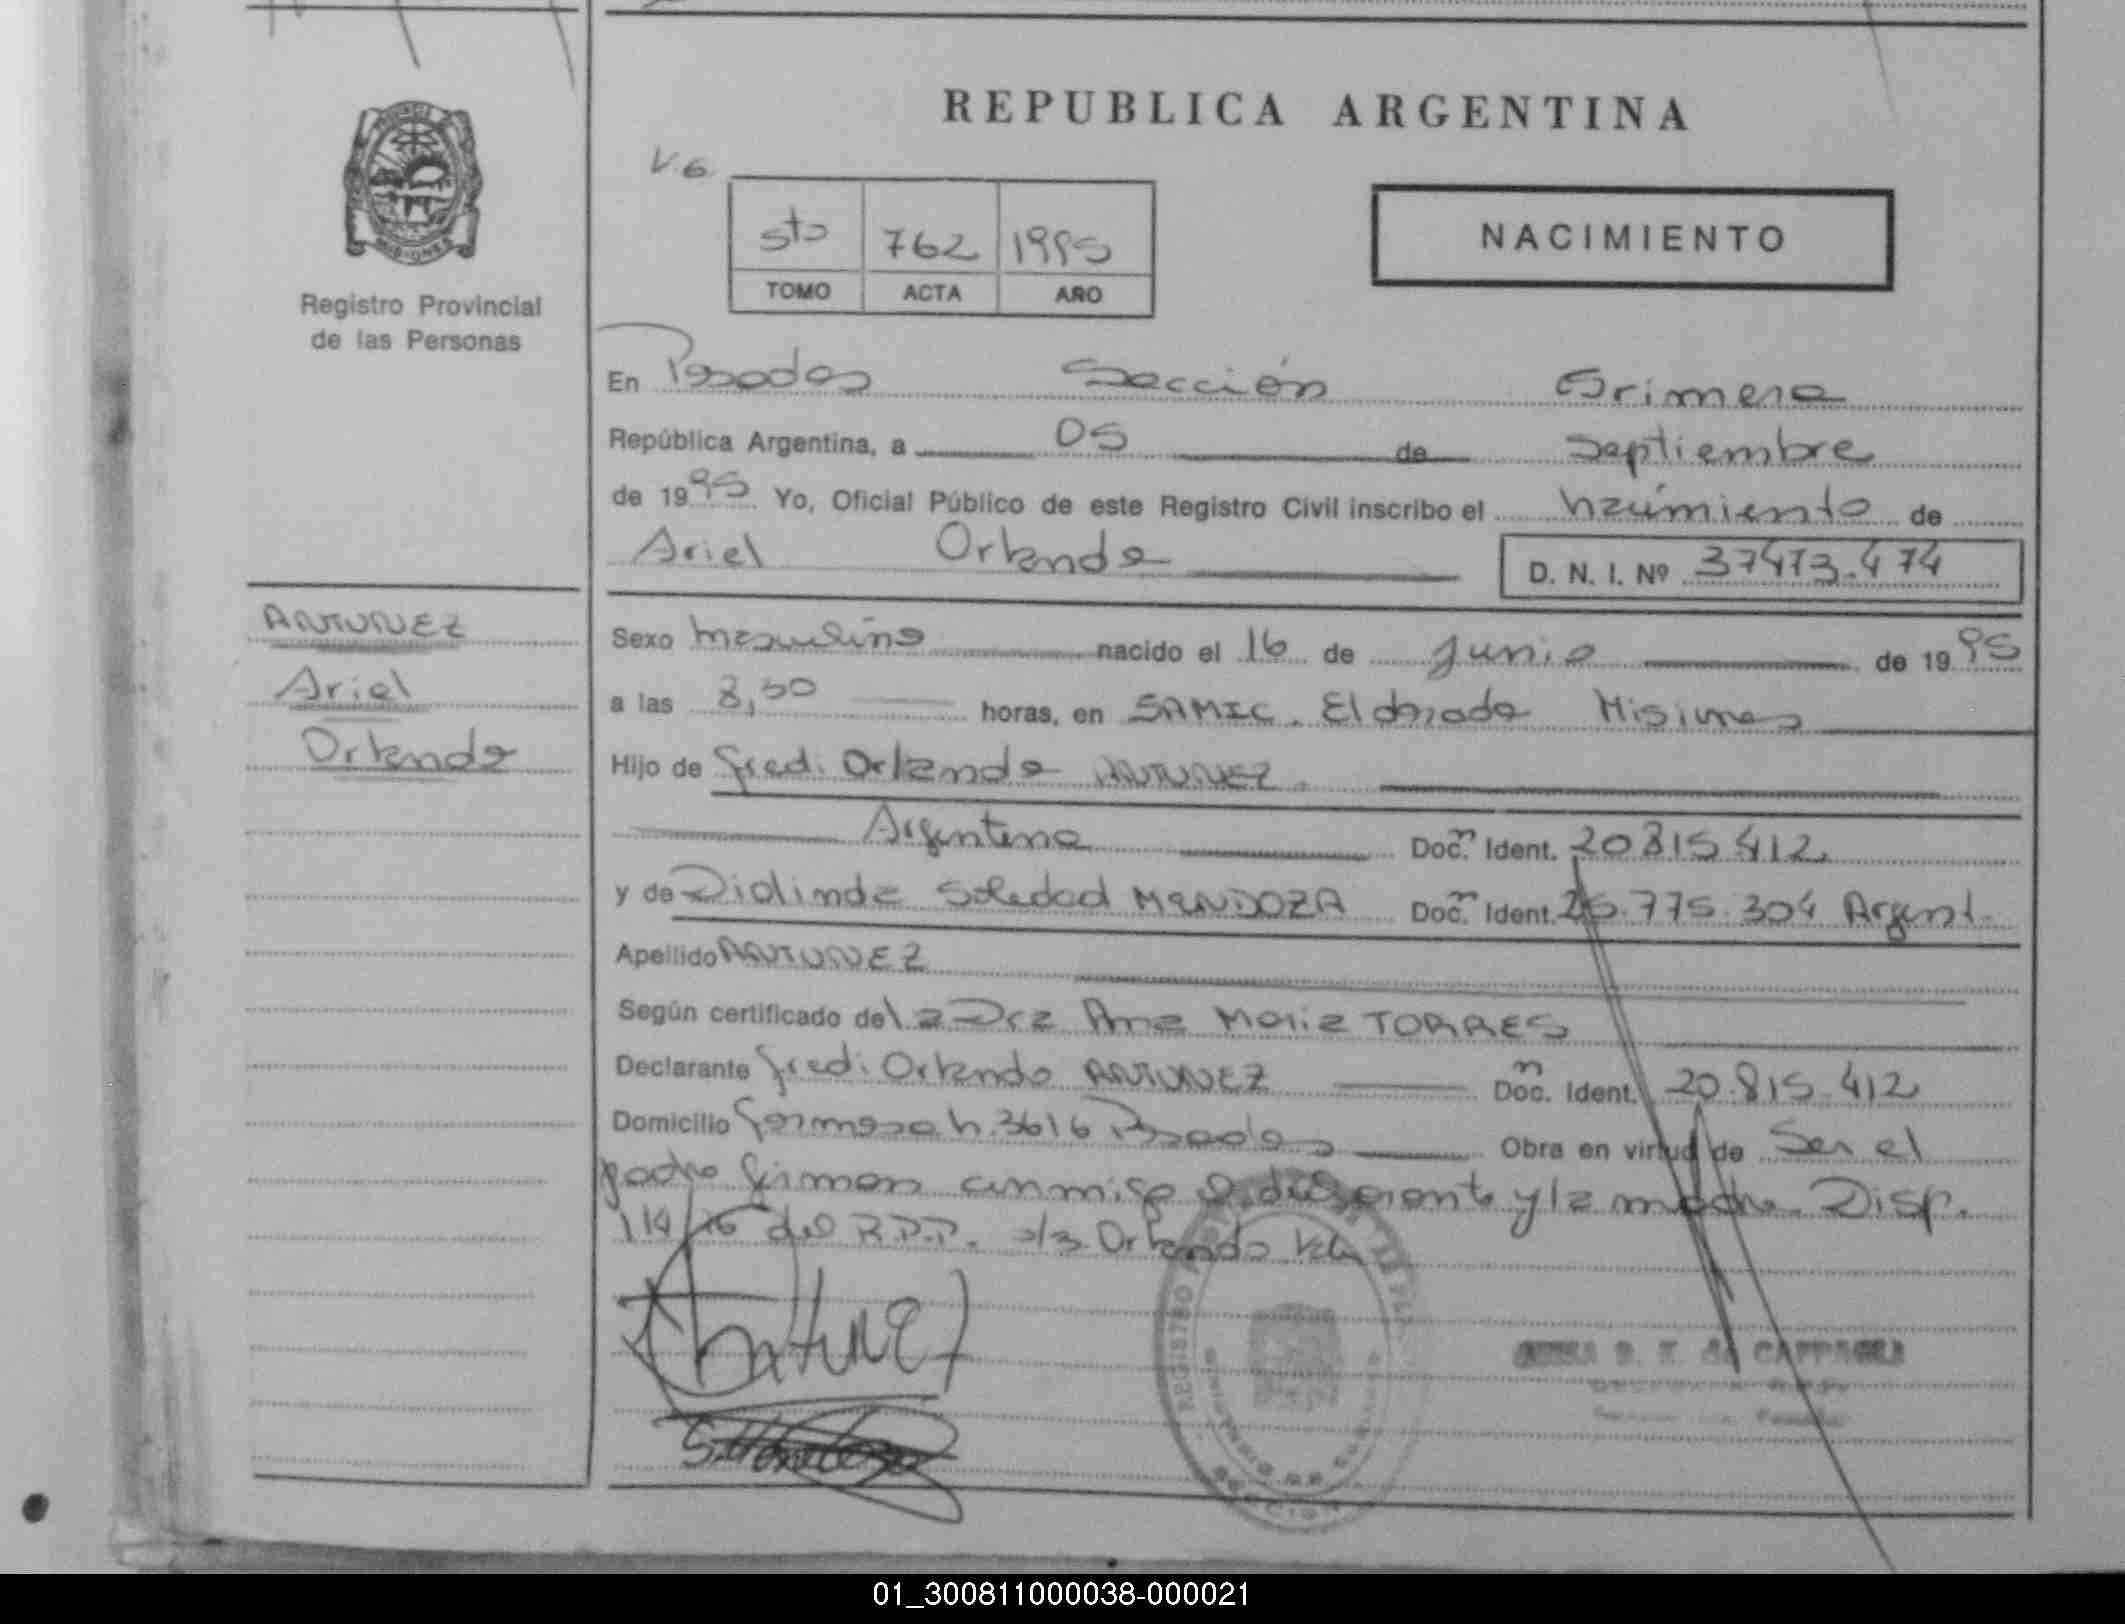 REPUBLICA ARGENTINA
V.G.
5to 762 1995
TOMO ACTA AÑO
NACIMIENTO
MISIONES
Registro Provincial
de las Personas
En Posadas Sección Primera
República Argentina, a 05 de Septiembre
de 1995 Yo, Oficial Público de este Registro Civil inscribo el nacimiento de
Ariel Orlando D. N. I. Nº 37473.474
ANTUNEZ
Ariel
Orlando
Sexo masculino nacido el 16 de Junio de 1995
a las 8,30 horas, en SAMIC. Eldorado Misiones
Hijo de Fredi Orlando ANTUNEZ.
Argentina Doc. Ident. 20815412
y de Diolinda Soledad MENDOZA Doc. Ident. 25.775.304 Argent.
Apellido ANTUNEZ
Según certificado del la Dra Ana Maria TORRES
Declarante Fredi Orlando ANTUNEZ Doc. Ident. 20.815.412
Domicilio Formosa n. 3616 Posadas Obra en virtud de Ser el
padre firman conmigo el declarante y la madre Disp.
114/76 del R.P.P. Orlando
Antunez
S. Mendoza
REGISTRO
SECCION
de CAPPAGLI
01_300811000038-000021